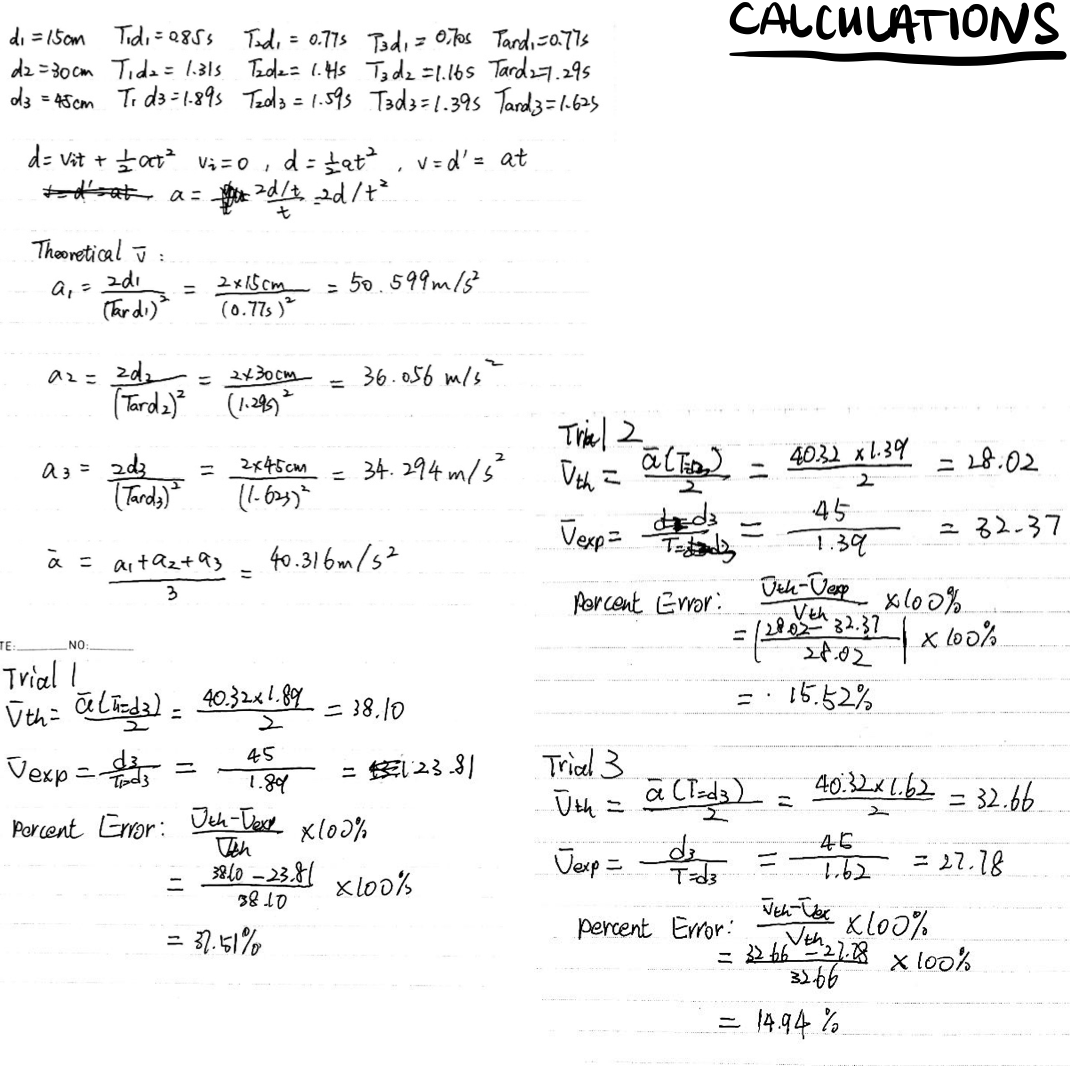 CALCULATIONS
d₁ = 15cm T₁d₁ = 0.85s T₂d₁ = 0.77s T₃d₁ = 0.70s Tavd₁=0.77s
d₂ = 30cm T₁d₂ = 1.31s T₂d₂ = 1.41s T₃d₂ = 1.16s Tavd₂=1.29s
d₃ = 45cm T₁d₃ = 1.89s T₂d₃ = 1.59s T₃d₃ = 1.39s Tavd₃=1.62s
d = vit + 1/2 at² vi = 0 , d = 1/2 at² , v = d' = at
a = 2d/t / t = 2d/t²
Theoretical v̄ :
a₁ = 2d₁ / (Tavd₁)² = 2×15cm / (0.77s)² = 50.599m/s²
a₂ = 2d₂ / (Tavd₂)² = 2×30cm / (1.29s)² = 36.056 m/s²
a₃ = 2d₃ / (Tavd₃)² = 2×45cm / (1.62s)² = 34.294m/s²
ā = a₁+a₂+a₃ / 3 = 40.316m/s²
TE: NO:
Trial 1
V̄th = ā(T₁=d₃) / 2 = 40.32×1.89 / 2 = 38.10
V̄exp = d₃ / T₁=d₃ = 45 / 1.89 = 23.81
Percent Error: V̄th-V̄exp / V̄th ×100%
= 38.10-23.81 / 38.10 ×100%
= 37.51%
Trial 2
V̄th = ā(T=d₃) / 2 = 40.32 ×1.39 / 2 = 28.02
V̄exp = d₃ / T=d₃ = 45 / 1.39 = 32.37
Percent Error: V̄th-V̄exp / Vth ×100%
= |28.02-32.37 / 28.02| ×100%
= 15.52%
Trial 3
V̄th = ā(T=d₃) / 2 = 40.32×1.62 / 2 = 32.66
V̄exp = d₃ / T=d₃ = 45 / 1.62 = 27.78
Percent Error: V̄th-V̄ex / Vth ×100%
= 32.66-27.78 / 32.66 ×100%
= 14.94%